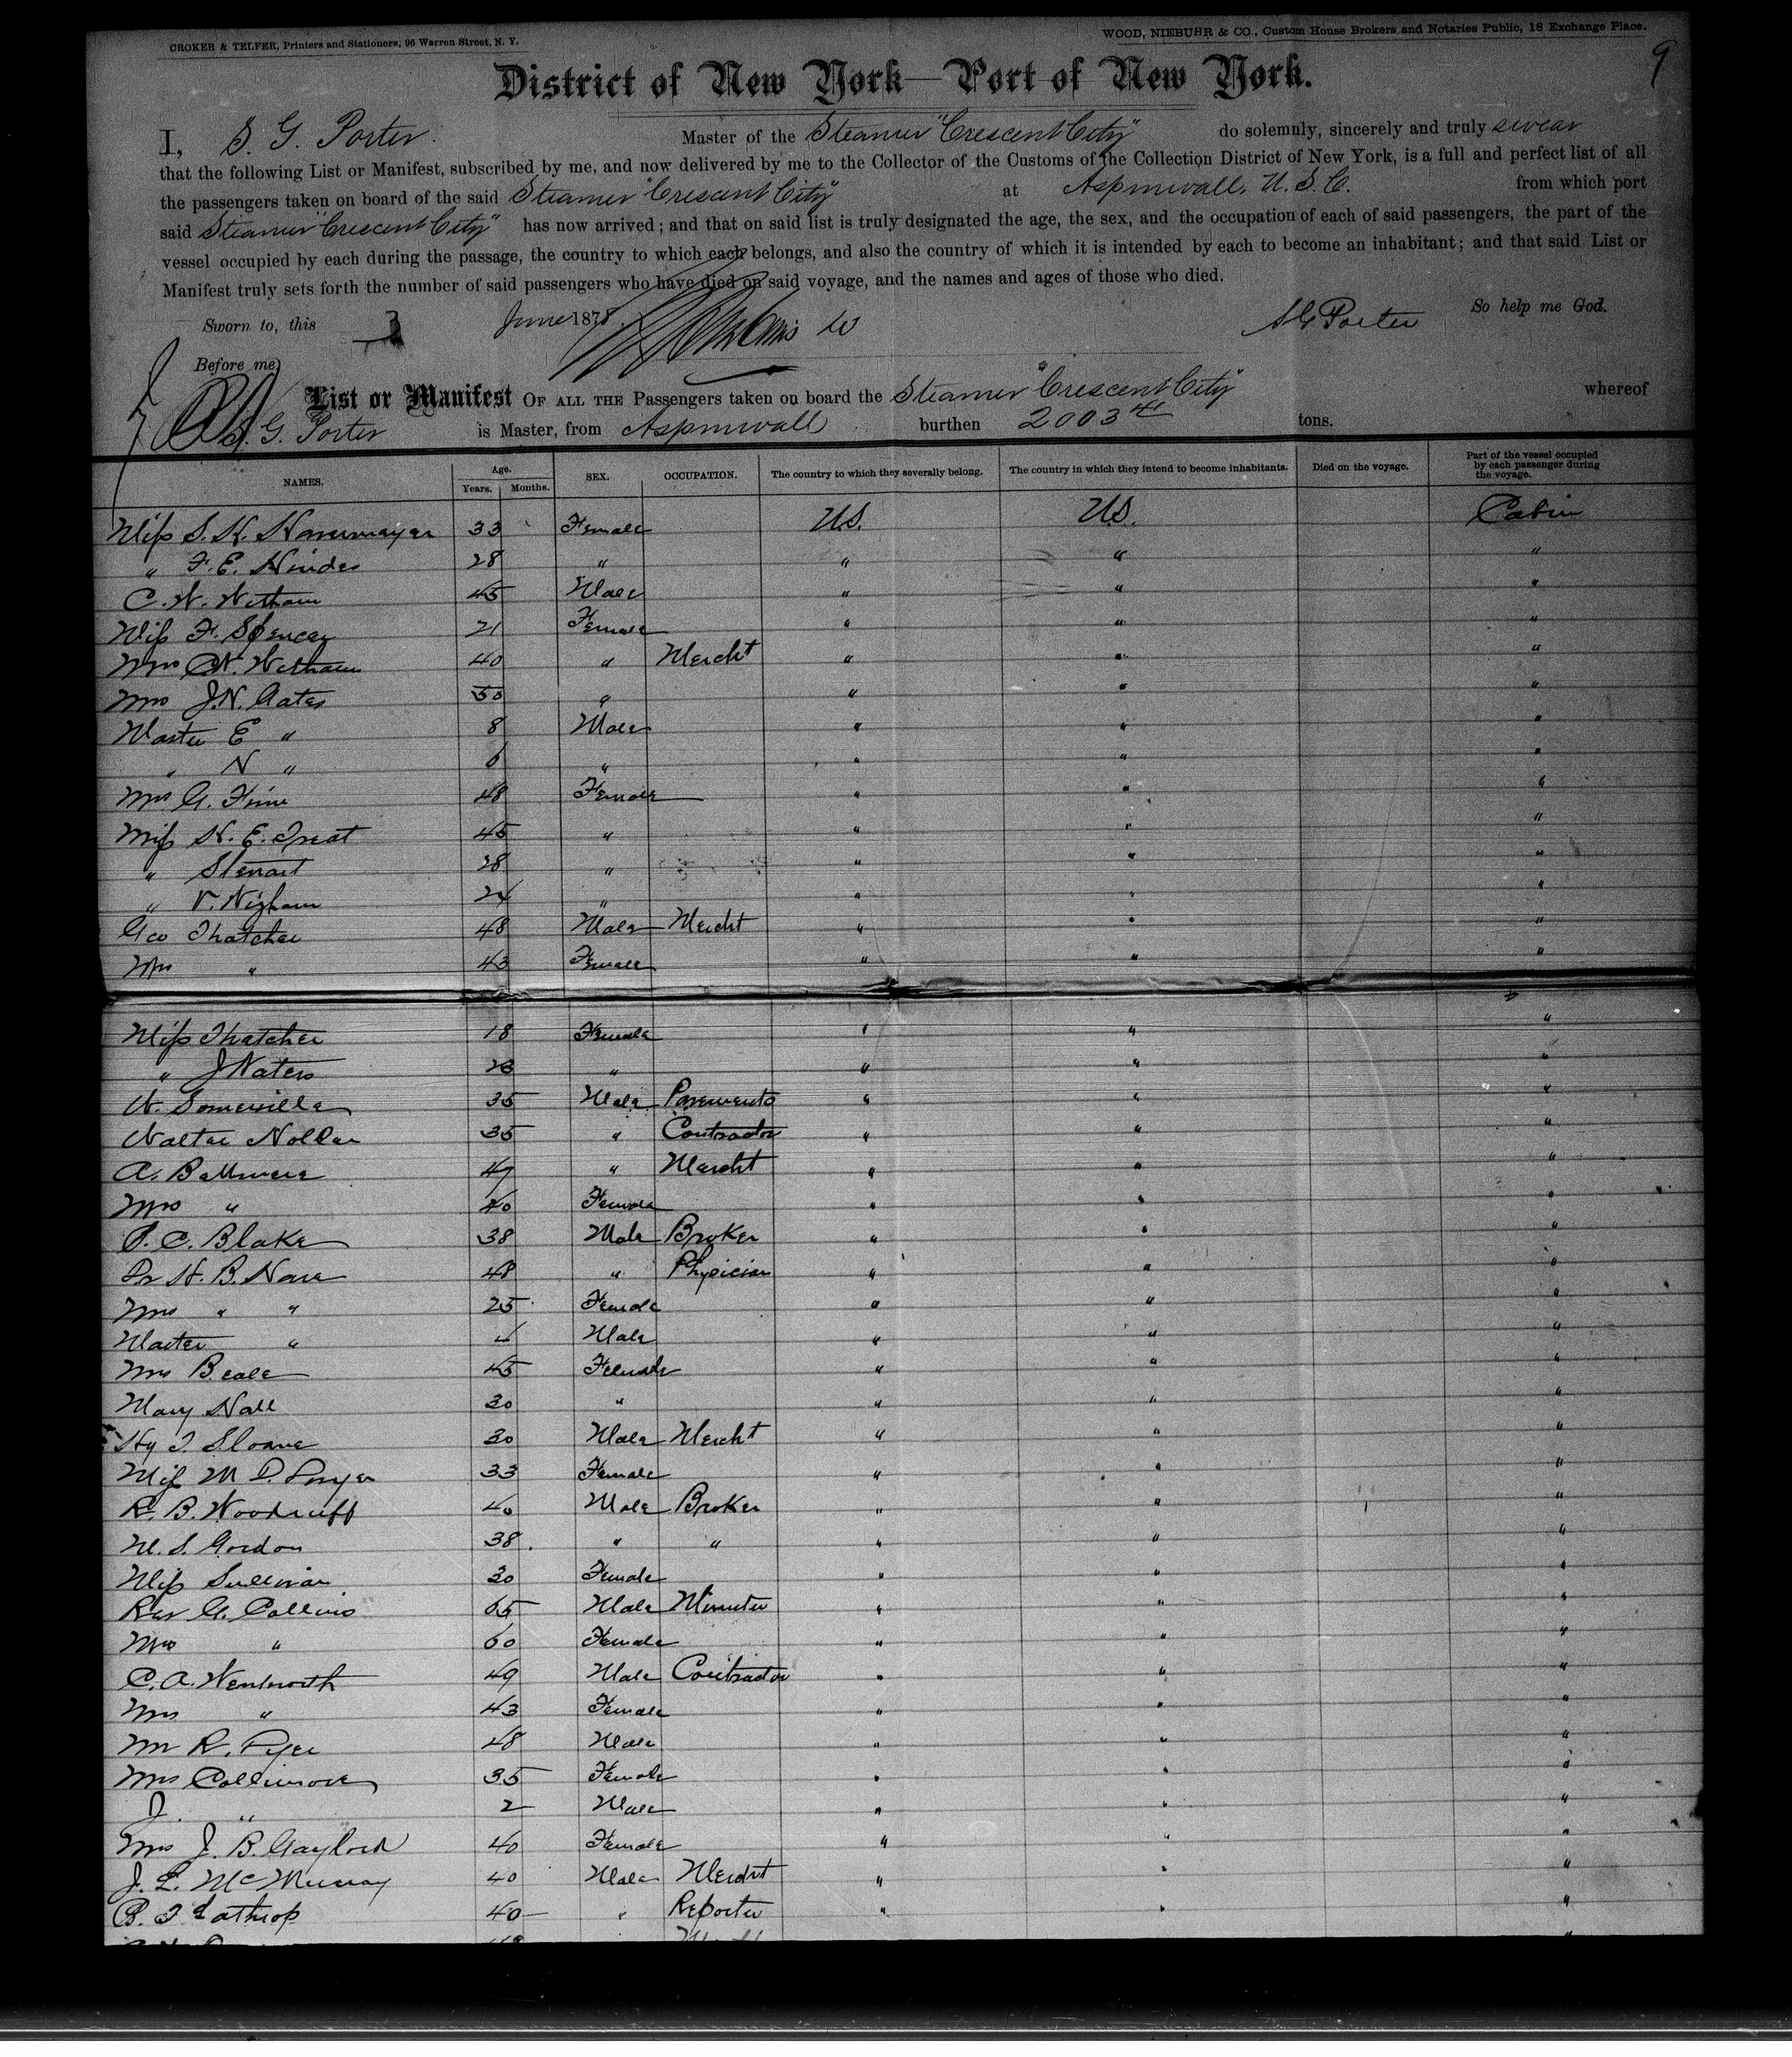 CROKER & TELFER, Printers and Stationers, 96 Warren Street, N. Y.
WOOD, NIEBUHR & CO., Custom House Brokers and Notaries Public, 18 Exchange Place.
9
District of New York—Port of New York.
I, S. G. Porter Master of the Steamer "Crescent City" do solemnly, sincerely and truly swear
that the following List or Manifest, subscribed by me, and now delivered by me to the Collector of the Customs of the Collection District of New York, is a full and perfect list of all
the passengers taken on board of the said Steamer "Crescent City" at Aspinwall, U. S. C. from which port
said Steamer "Crescent City" has now arrived; and that on said list is truly designated the age, the sex, and the occupation of each of said passengers, the part of the
vessel occupied by each during the passage, the country to which each belongs, and also the country of which it is intended by each to become an inhabitant; and that said List or
Manifest truly sets forth the number of said passengers who have died on said voyage, and the names and ages of those who died.
So help me God.
Sworn to, this 3 June 1878 S G Porter
Before me,
List or Manifest OF ALL THE Passengers taken on board the Steamer "Crescent City" whereof
S. G. Porter is Master, from Aspinwall burthen 2003 41 tons.
NAMES. Age. Years. Months. SEX. OCCUPATION. The country to which they severally belong. The country in which they intend to become inhabitants. Died on the voyage. Part of the vessel occupied by each passenger during the voyage.
Miss S. H. Havemayer 33 Female US. US. Cabin
" F. E. Hindes 28 " " " "
C. W. Witham 45 Male " " "
Miss F. Spencer 21 Female " " "
Mrs C. W. Witham 40 " Mercht " " "
Mrs J. N. Gates 50 " " " "
Master E " 8 Male " " "
" N " 6 " " " "
Mrs G. 48 Female " " "
Miss H. E. Treat 45 " " " "
" Stewart 28 " " " "
" V. Wigham 24 " " " "
Geo Thatcher 48 Male Mercht " " "
Mrs " 43 Female " " "
Miss Thatcher 18 Female " " "
" J Waters 23 " " " "
W. Somerville 35 Male Pavements " " "
Walter 35 " Contractor " " "
A. 47 " Mercht " " "
Mrs " 40 Female " " "
P. C. Blake 38 Male Broker " " "
Dr H. B. 48 " Physician " " "
Mrs " " 25 Female " " "
Master " 4 Male " " "
Mrs Beale 45 Female " " "
Mary Hall 30 " " " "
Hy T. Sloane 30 Male Mercht " " "
Miss M D. 33 Female " " "
R. B. Woodruff 40 Male Broker " " "
M. S. Gordon 38 " " " " "
Miss Sullivan 30 Female " " "
Rev G. Collins 65 Male Minister " " "
Mrs " 60 Female " " "
C. A. Wentworth 49 Male Contractor " " "
Mrs " 43 Female " " "
Mr R. 48 Male " " "
Mrs Collimore 35 Female " " "
J. " 2 Male " " "
Mrs J. B. Gaylord 40 Female " " "
J. L. McMurray 40 Male Mercht " " "
B. T. Lathrop 40 " Reporter " " "